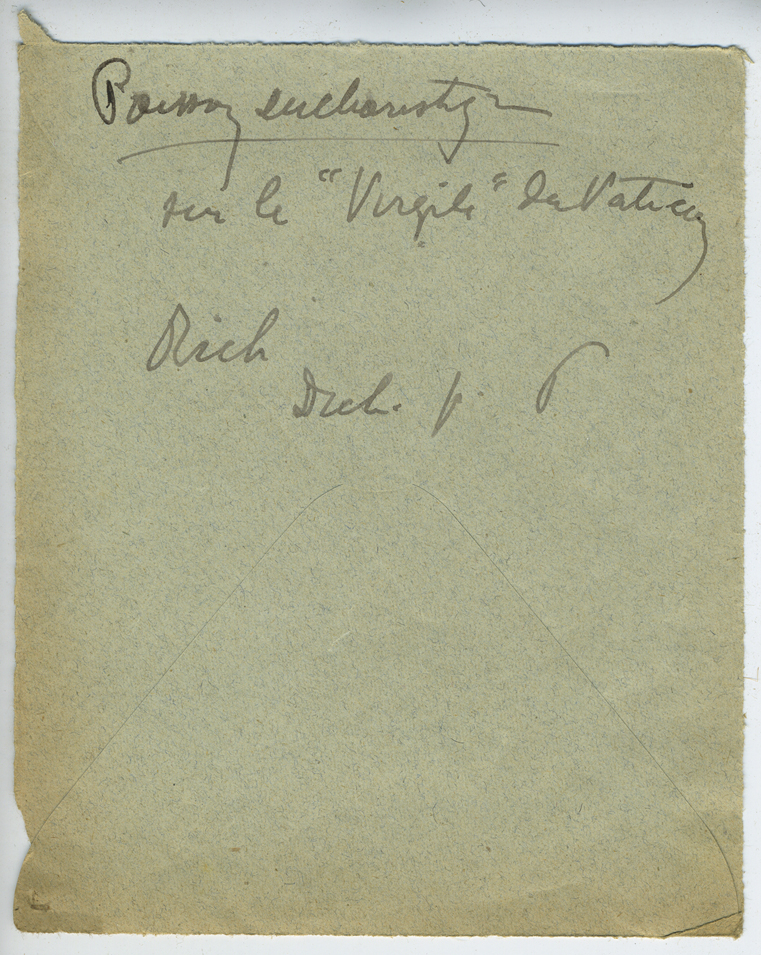 Poisson eucharistiq
sur le "Virgile" du Vatican
Rich
Dich. p.